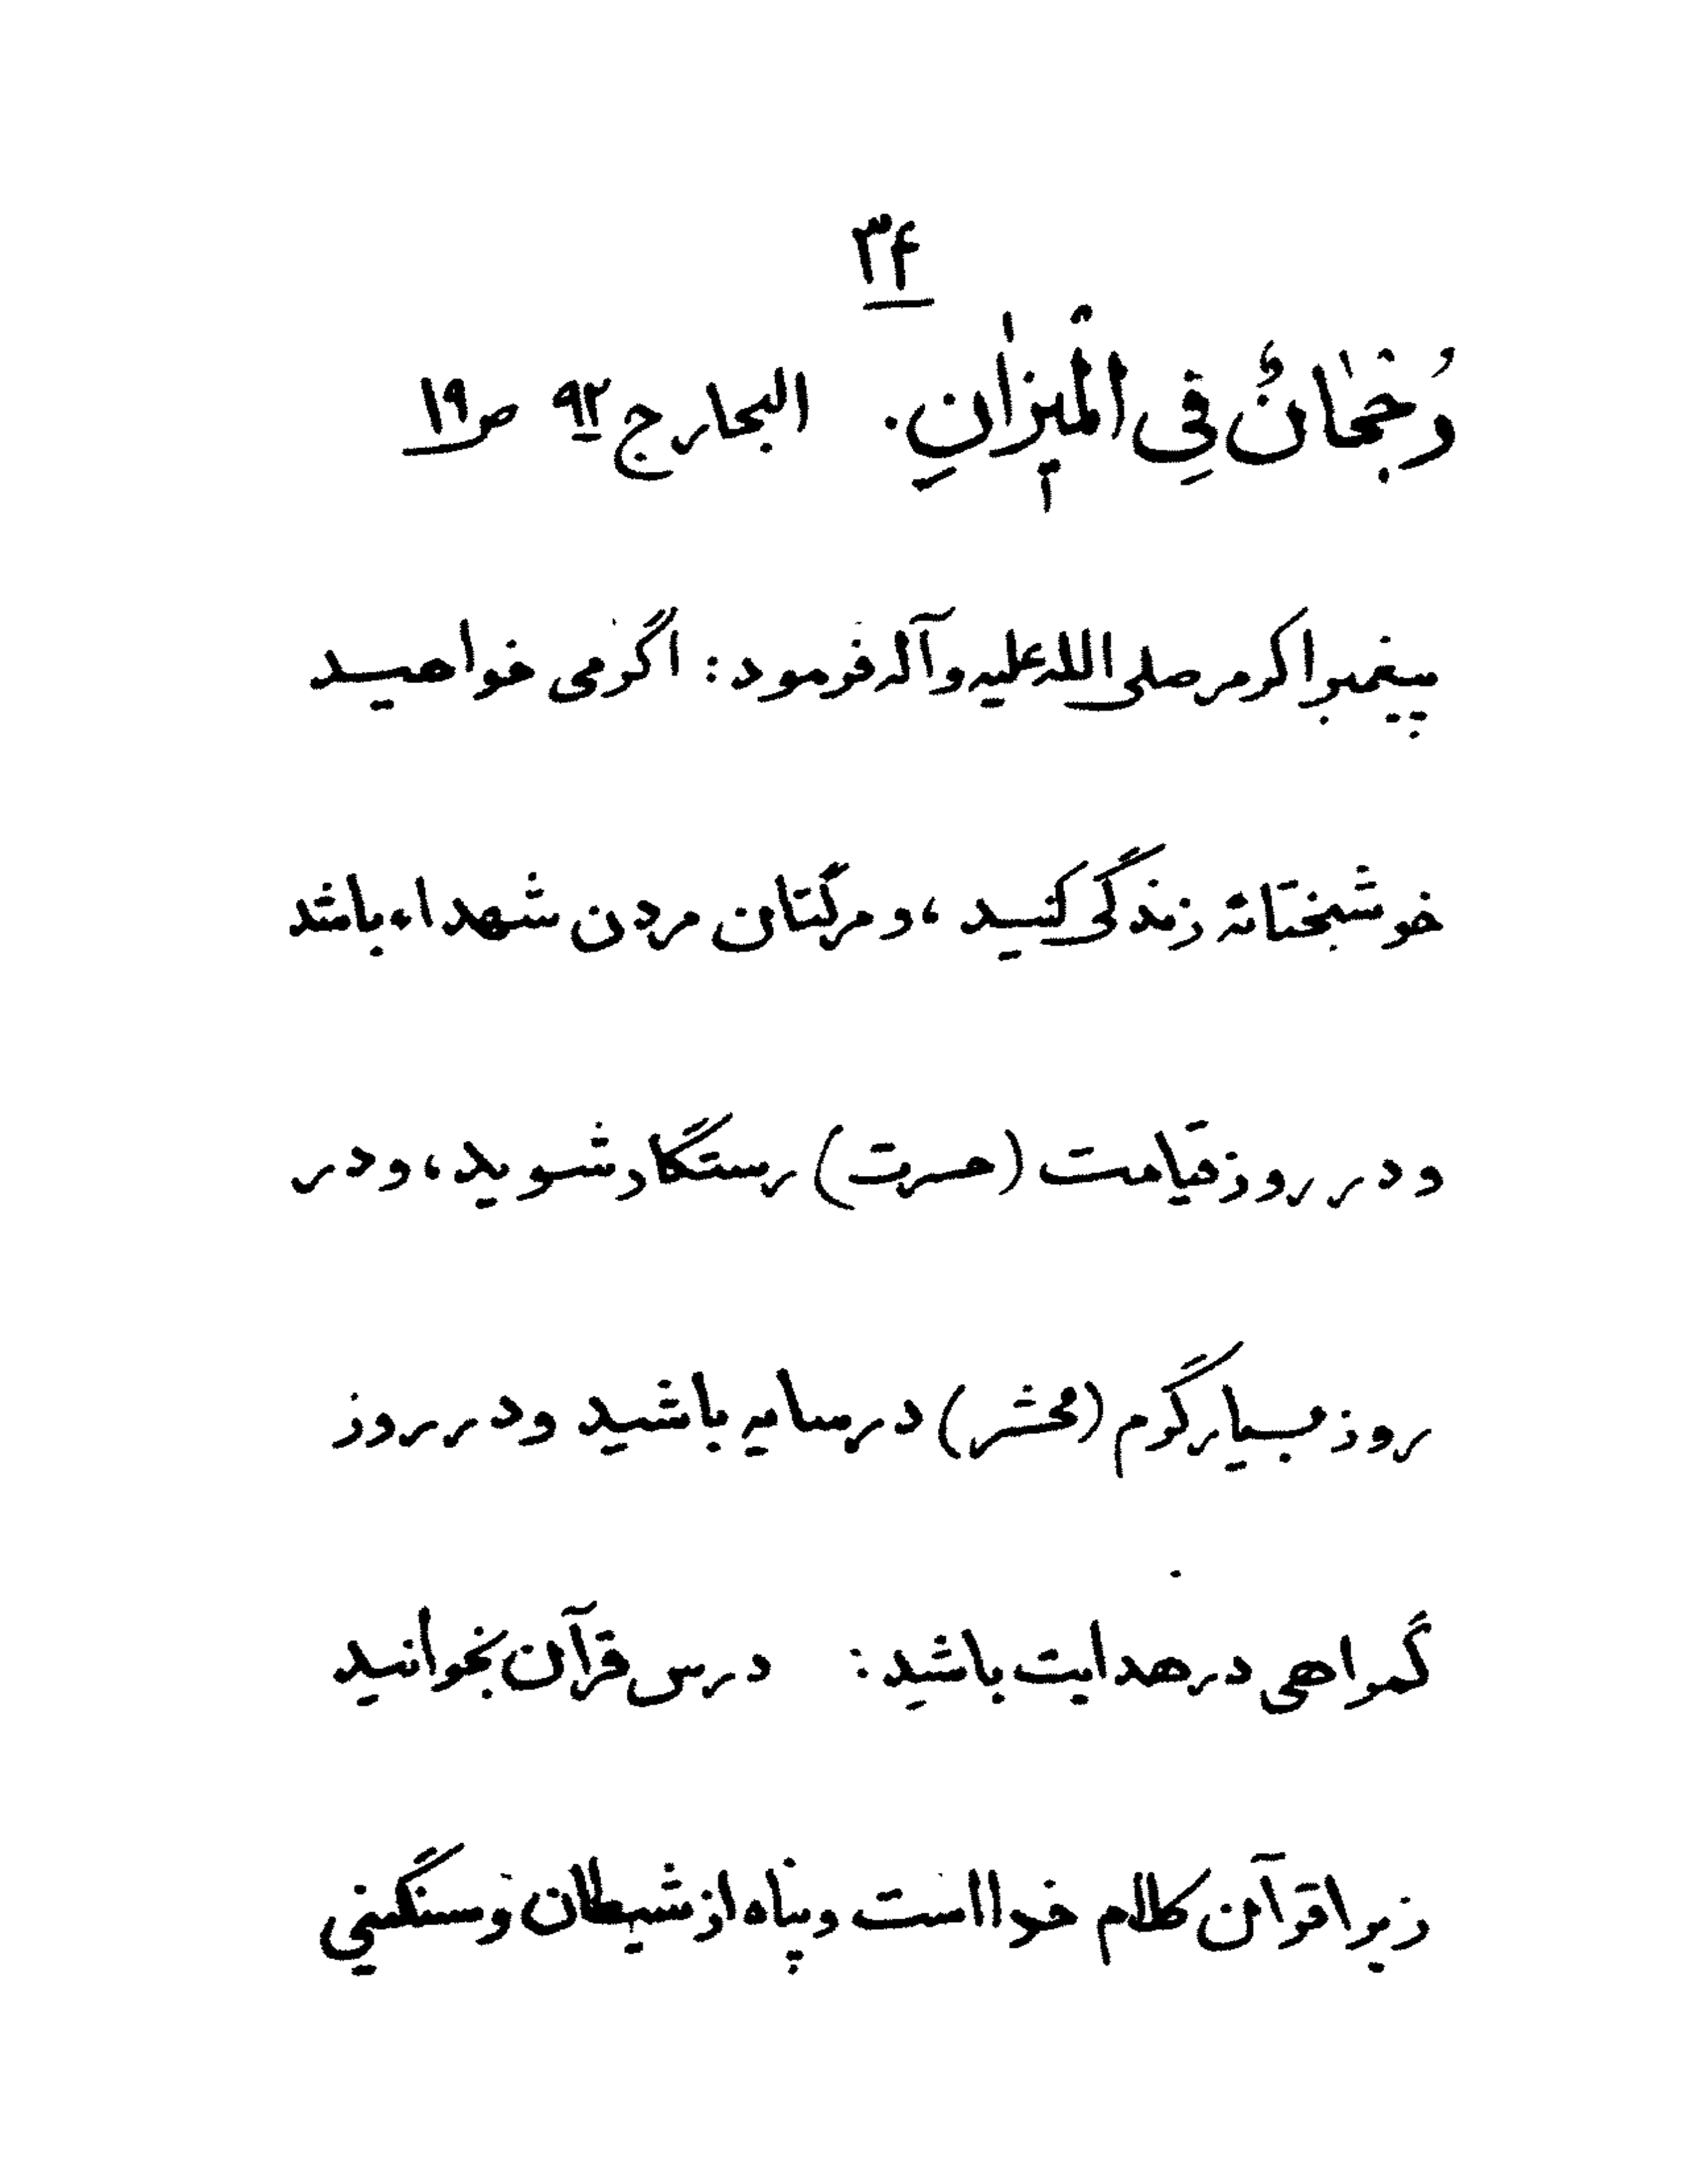 ۳۴
وَُجْحٰانٌ فِی الْمیٖزٰانِ. البحار ج ۹۲ ص ۱۹
پیغمبر اکرم صلی الله علیه و آله فرمود: اگر می خواهید
خوشبختانه زندگی کنید، و مرگتان مردن شهداء باشد
و در روز قیامت (حسرت) رستگار شوید، و در
روز بسیار گرم (محشر) در سایه باشید و در روز
گمراهی در هدایت باشید: درس قرآن بخوانید
زیرا قرآن کلام خدا است و پناه از شیطان و سنگینی